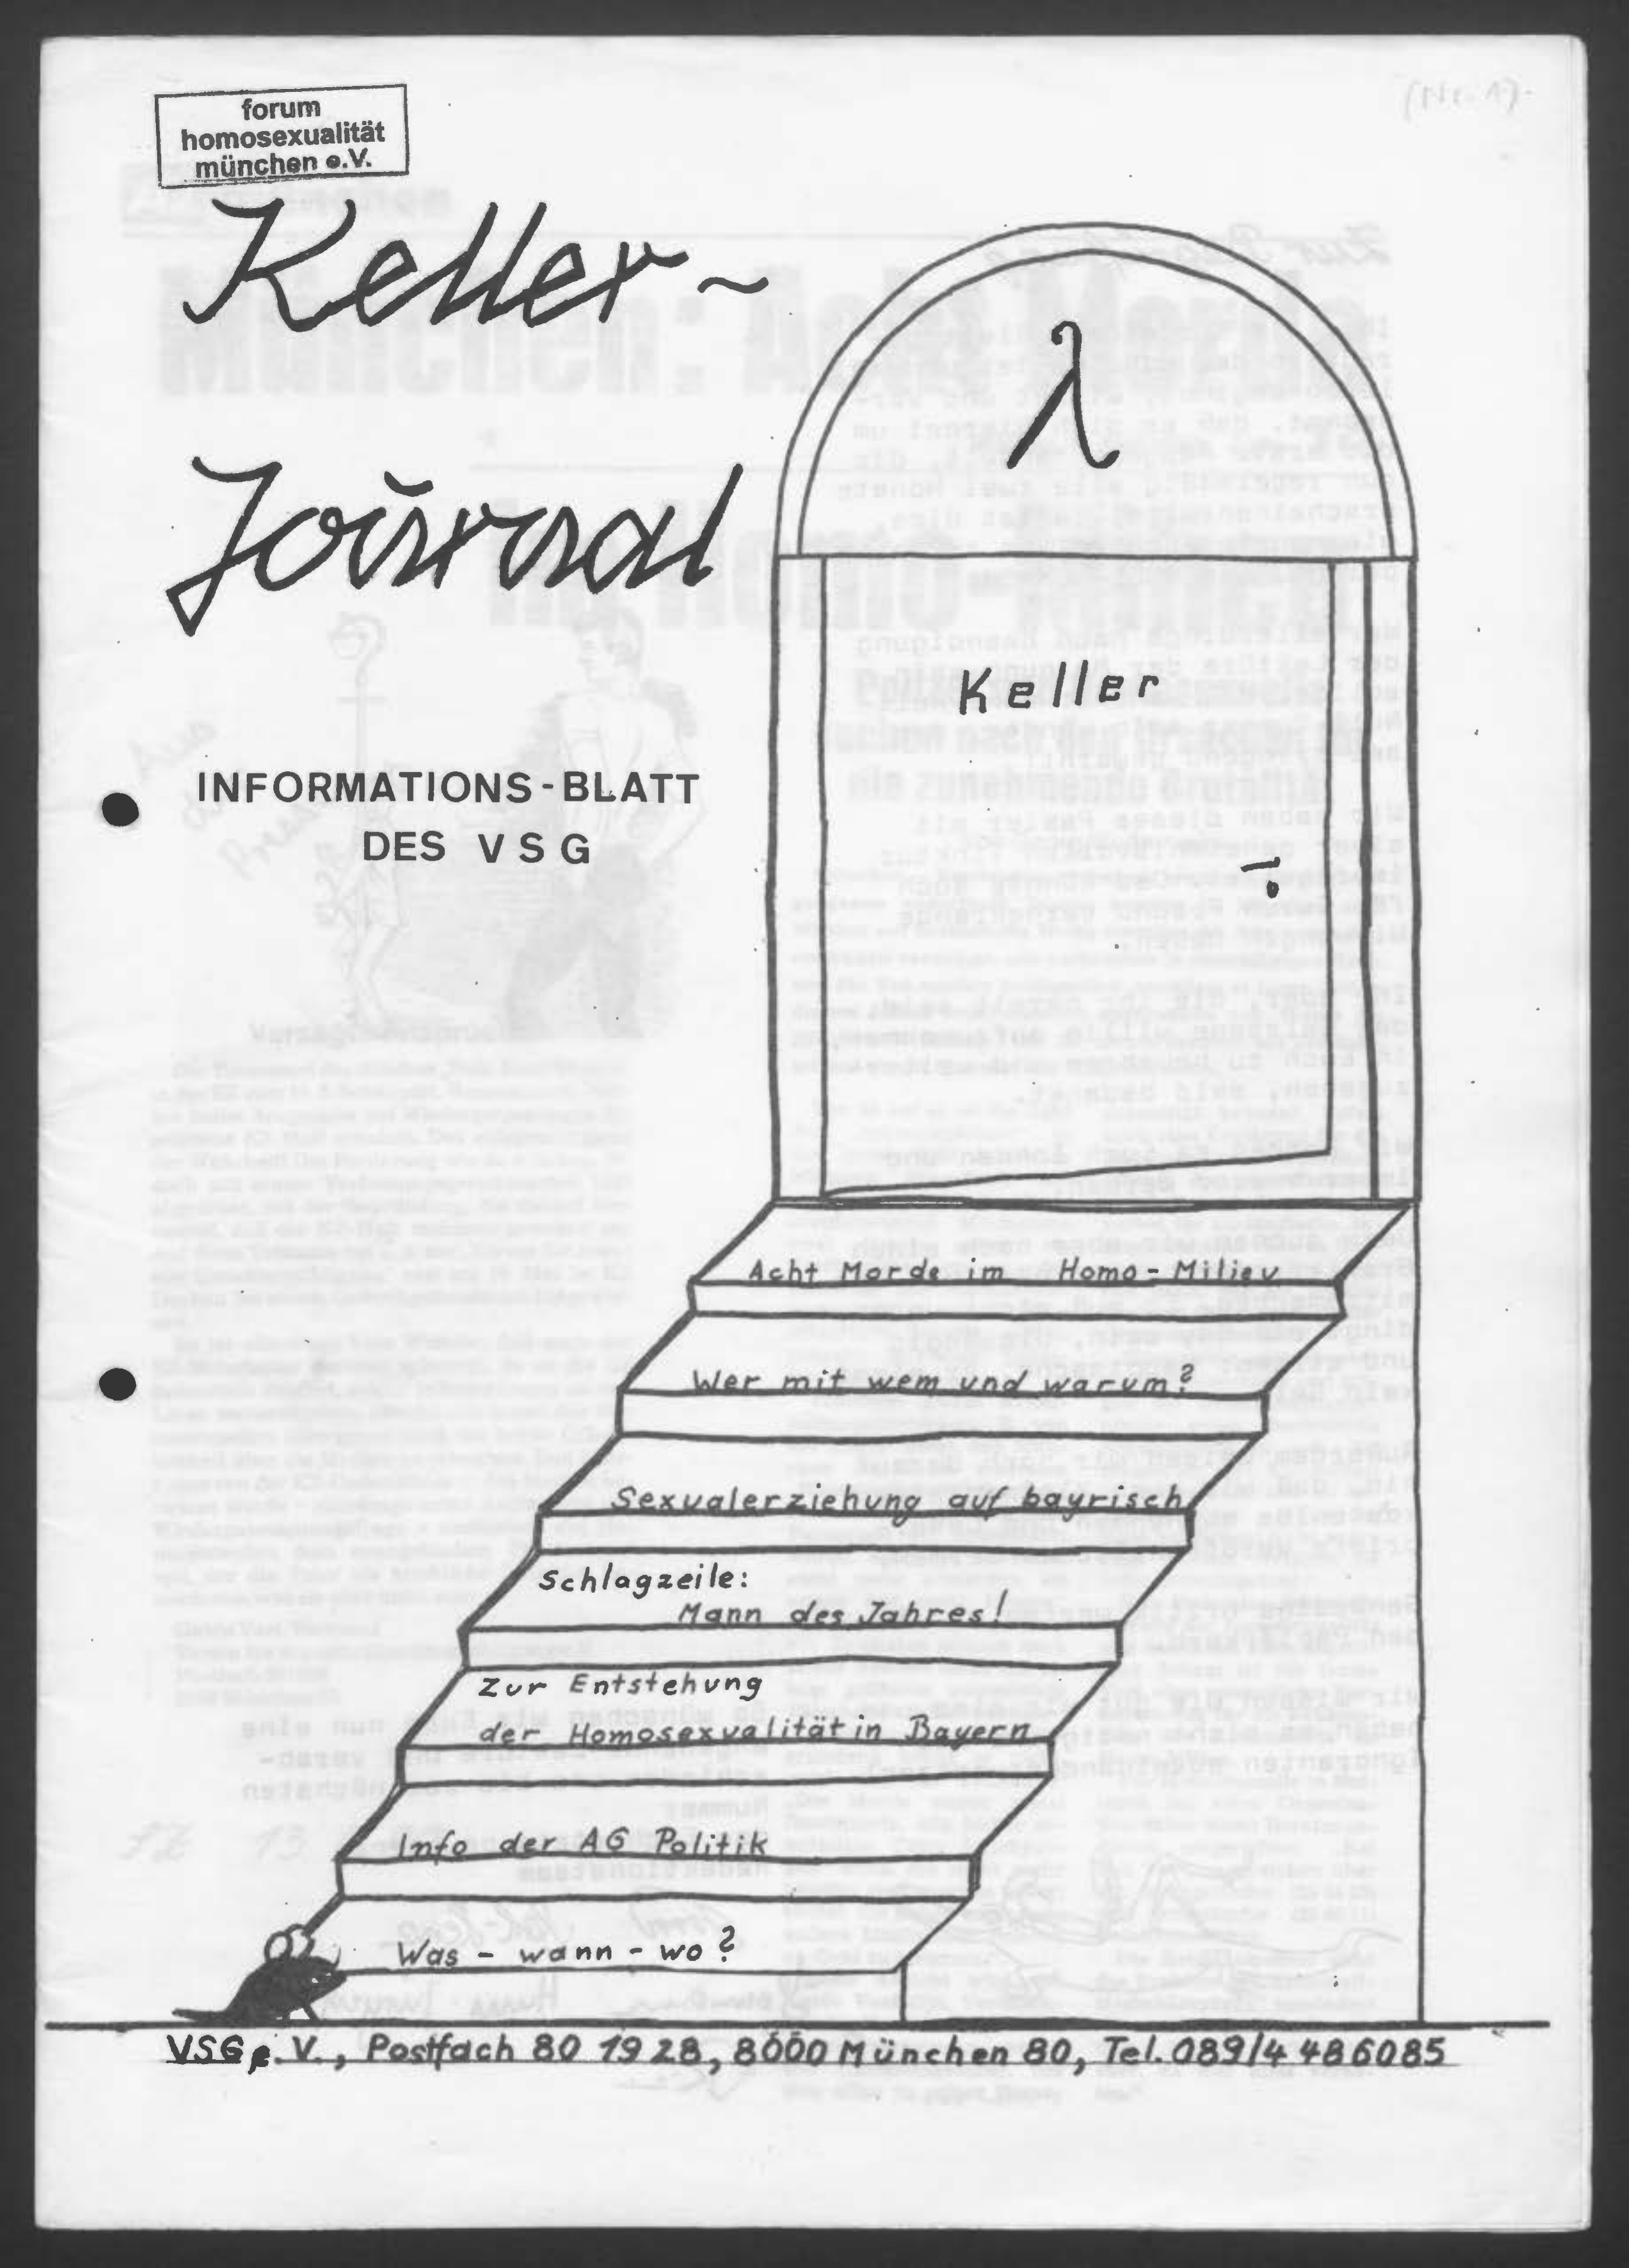 forum
homosexualität
münchen e.V.
Keller-
Journal
INFORMATIONS-BLATT
DES VSG
λ
Keller
Acht Morde im Homo-Milieu
Wer mit wem und warum?
Sexualerziehung auf bayrisch
Schlagzeile:
Mann des Jahres!
Zur Entstehung
der Homosexualität in Bayern
Info der AG Politik
Was - wann - wo?
VSG e.V., Postfach 80 19 28, 8000 München 80, Tel. 089/4 486085